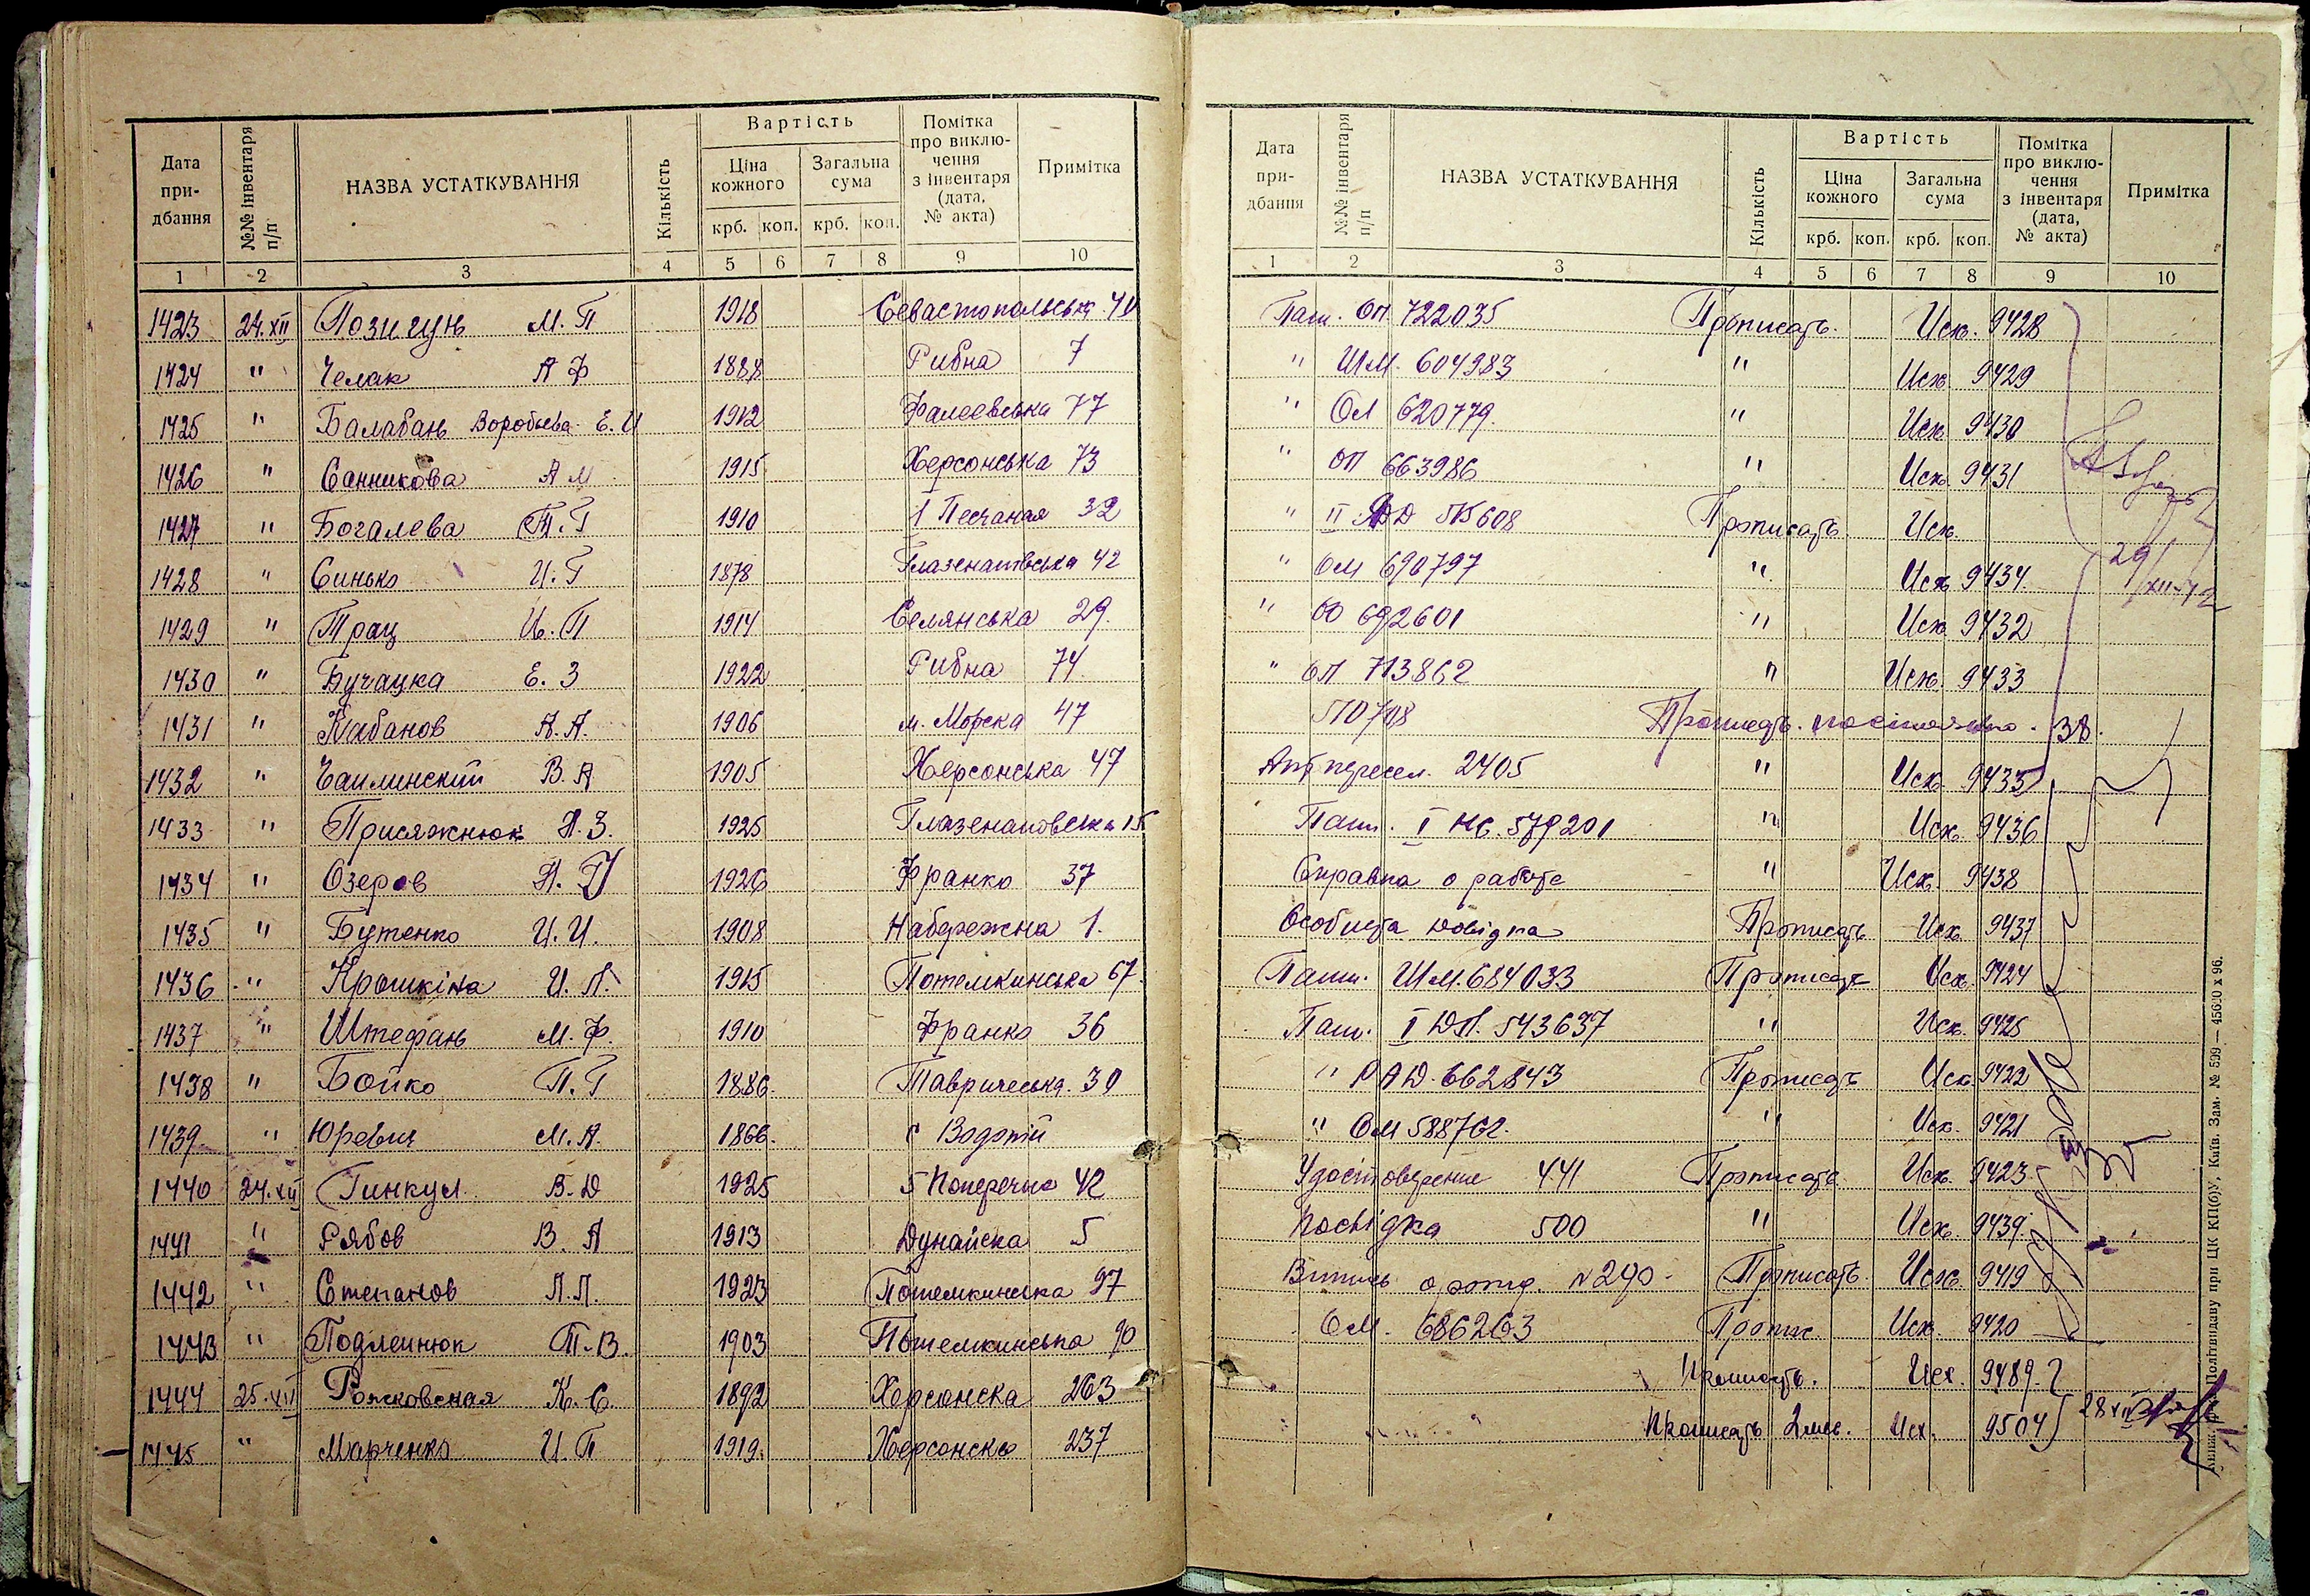 Дата при- дбання №№ інвентаря п/п НАЗВА УСТАТКУВАННЯ Кількість Вартість Ціна кожного крб. коп. Загальна сума крб. коп. Помітка про виклю- чення з інвентаря (дата, № акта) Примітка
1 2 3 4 5 6 7 8 9 10
1423 24.XII М.П 1918 Севастопольськ. 40
1424 " Челак А Ф 1888 Рибна 7
1425 " Балабань Воробьева Е. И 1912 Фалеевська 77
1426 " Санникова А М 1915 Херсонська 73
1427 " Богалева Т.Г 1910 1 Песчаная 32
1428 " Синько И.Г 1878 42
1429 " Трац И.П 1914 Селянська 29.
1430 " Бучацка Е. З 1922 Рибна 74
1431 " Кабанов А.А. 1906 м. Морска 47
1432 " Чаплинский В.А 1905 Херсонська 47
1433 " Присяжнюк Н.З. 1925 Глазенаповська 15
1434 " Озеров 1926 Франко 37
1435 " Бутенко И.И. 1908 Набережна 1.
1436 " Крошкіна И.Л. 1915 Потемкинська 67.
1437 " Штефань М.Ф. 1910 Франко 36
1438 " Бойко П.Г 1886. Тавричеська. 30
1439 " Юревич М.А. 1866. с
1440 24.XII Гинкул В.Д 1925 5 Поперечна 42
1441 " Рябов В. А 1913 Дунайска 5
1442 " Степанов Л.Л. 1923 Потемкинська 97
1443 " Т.В. 1903 Потемкинська 90
1444 25.XII К.С. 1892 Херсонска 263
1445 " Марченко И.П 1919. Херсонска 237
Дата при- дбання №№ інвентаря п/п НАЗВА УСТАТКУВАННЯ Кількість Вартість Ціна кожного крб. коп. Загальна сума крб. коп. Помітка про виклю- чення з інвентаря (дата, № акта) Примітка
1 2 3 4 5 6 7 8 9 10
Паш. ОП. 722035 Прописать. Исх. 9428
" ШМ. 604983 " Исх 9429
" ОЛ 620779. " Исх 9430
" ОП 663986 " Исх 9431
" II 608 Прописать Исх
" ОМ 690797 " Исх 9434.
" 692601 " Исх 9432
" ОП 713862 " Исх. 9433
Пропис. 38.
2405 " Исх 9435
Паш. I 579201 " Исх 9436
Справка о работе " Исх. 9438
Особиста довідка Прописать Исх 9437
Паш. ШМ.684033 Прописать Исх. 9424
Паш. I ДЛ. 543637 " Исх. 9425
" РАД. 662843 Прописать Исх 9422
" ОМ 588762. " Исх. 9421
Удостоверение 441 Прописать Исх. 9423
посвідка 500 " Исх. 9439.
Випись о рожд. N290. Прописать Исх. 9419
ОМ. 686263 Пропис Исх. 9420
Прописать. Исх. 9489.
Прописать 2 мес. Исх. 9504 28 XII
29/XII-42
Політвидаву при ЦК КП(б)У, Київ. Зам. № 599 — 45600 х 96.